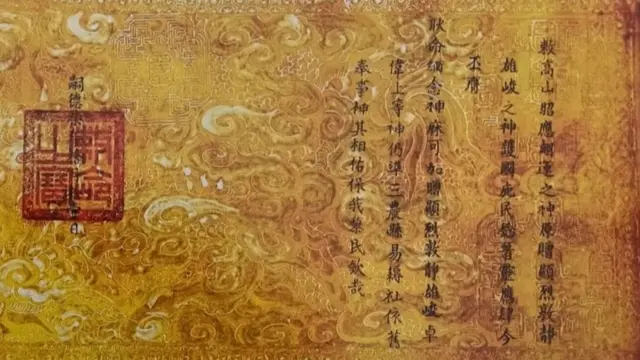 敕高山昭應翊運之神原贈顯烈敦靜
雄峻之神護國庇民稔著靈應肆今
丕膺
耿命緬念神庥可加贈顯烈敦靜雄峻卓
偉上等神仍準三農縣易社依舊
奉事神其相佑保我黎民欽哉
嗣德日